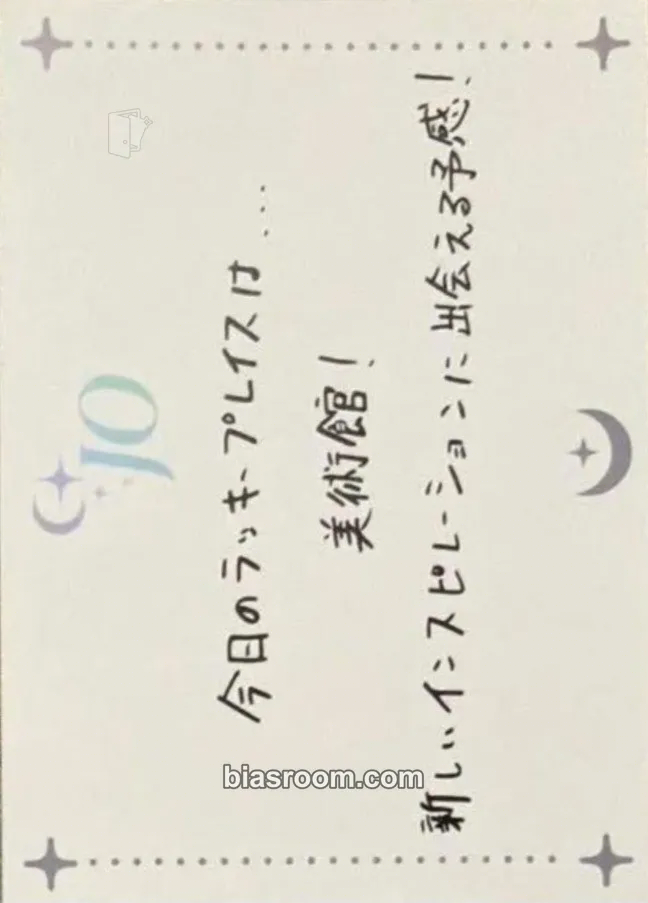 JO
今日のラッキープレイスは...
美術館！
新しいインスピレーションに出会える予感！
biasroom.com